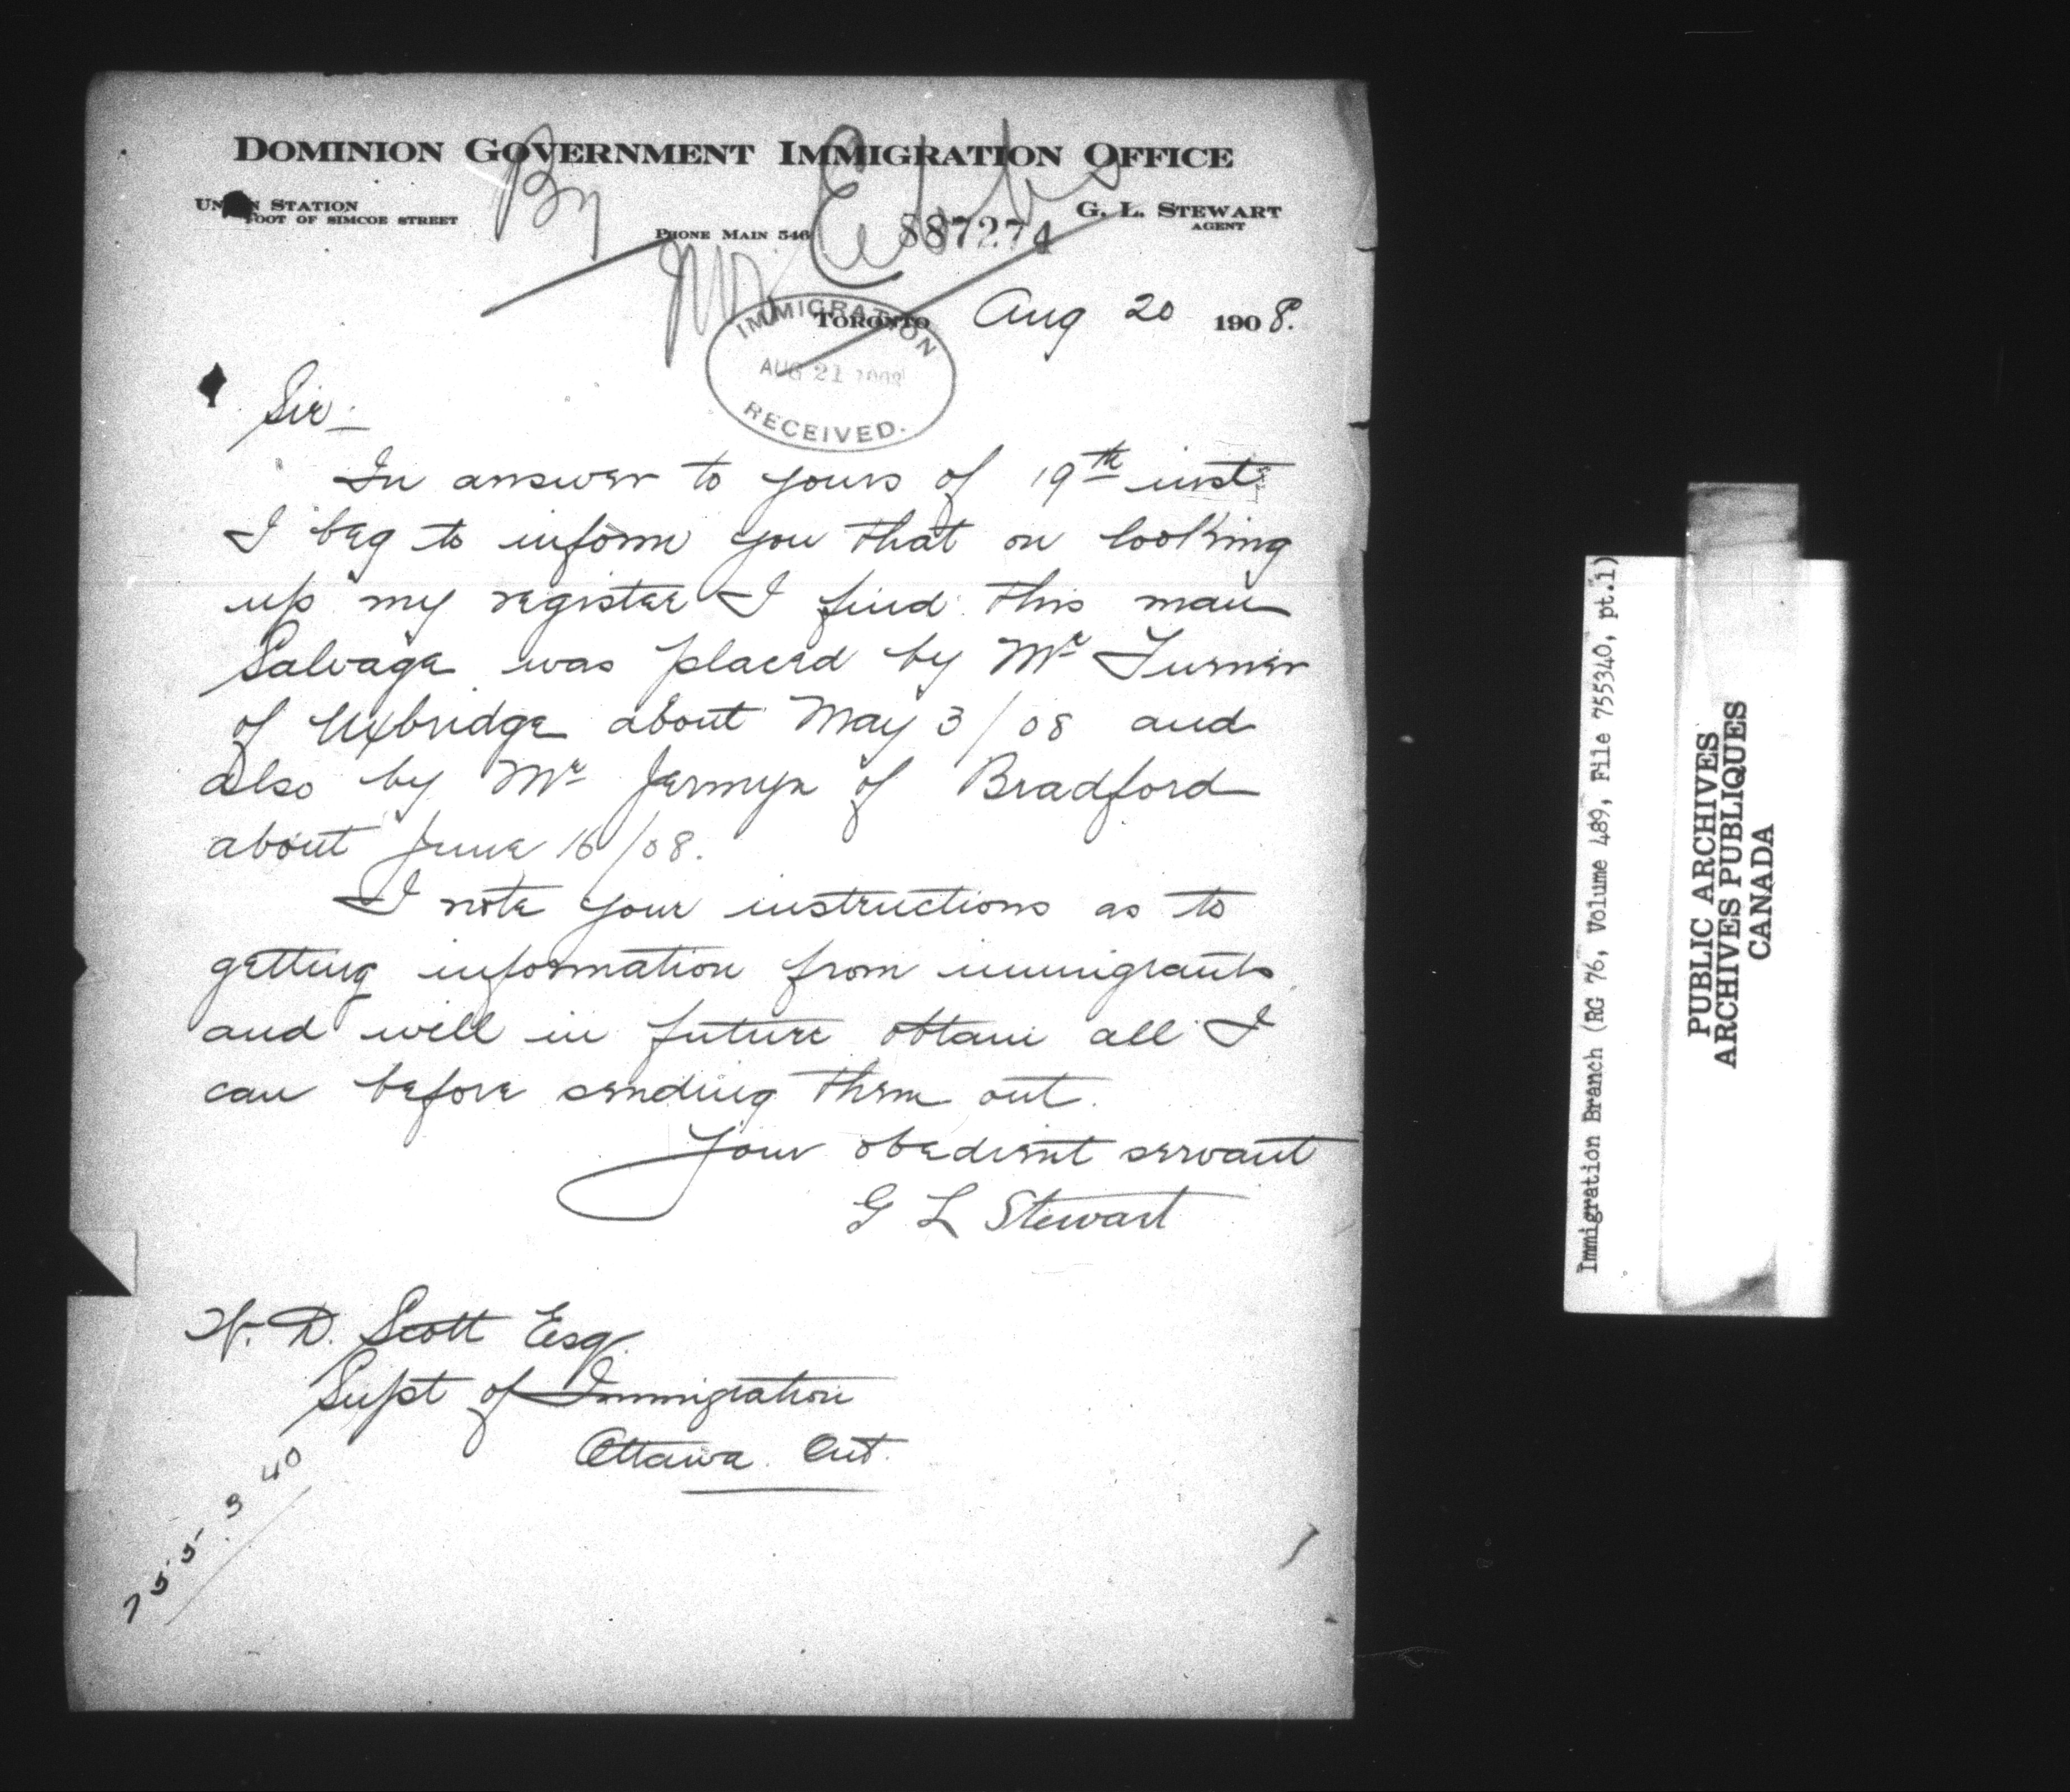 DOMINION GOVERNMENT IMMIGRATION OFFICE
UNION STATION
FOOT OF SIMCOE STREET
By
G. L. STEWART
AGENT
PHONE MAIN 546
887274
Mr.
TORONTO Aug 20 1908.
IMMIGRATION
AUG 21 1908
RECEIVED.
Sir:
In answer to yours of 19th inst
I beg to inform you that on looking
up my register I find this man
Salvage was placed by Mr Turner
of Uxbridge about May 3/08 and
also by Mr Jermyn of Bradford
about June 16/08.
I note your instructions as to
getting information from immigrants
and will in future obtain all I
can before sending them out.
Your obedient servant
G L Stewart
W. D. Scott Esq.
Supt of Immigration
Ottawa. Ont.
755340
Immigration Branch (RG 76, Volume 489, File 755340, pt.1)
PUBLIC ARCHIVES
ARCHIVES PUBLIQUES
CANADA